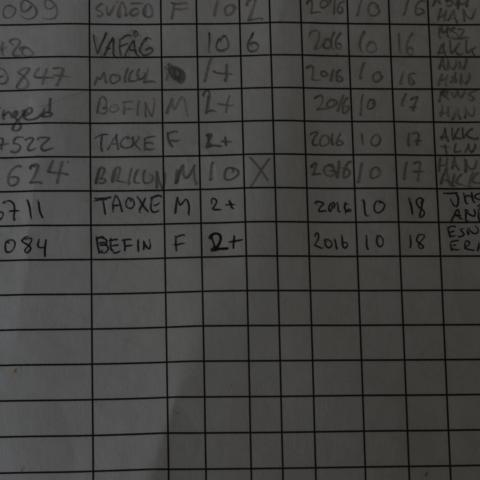 099 SVAED F 10 2 2016 10 16 HAN
420 VAFÅG 10 6 2016 10 16 MSZ AKK
0847 MOKUL 1+ 2016 10 16 ANN HAN
inged BOFIN M 2+ 2016 10 17 RWS HAN
7522 TAOXE F 2+ 2016 10 17 AKK TLN
624 BRKUN M 10 X 2016 10 17 HAN AKK
5711 TAOXE M 2+ 2016 10 18 JHS AN
084 BEFIN F 2+ 2016 10 18 ESN ERA